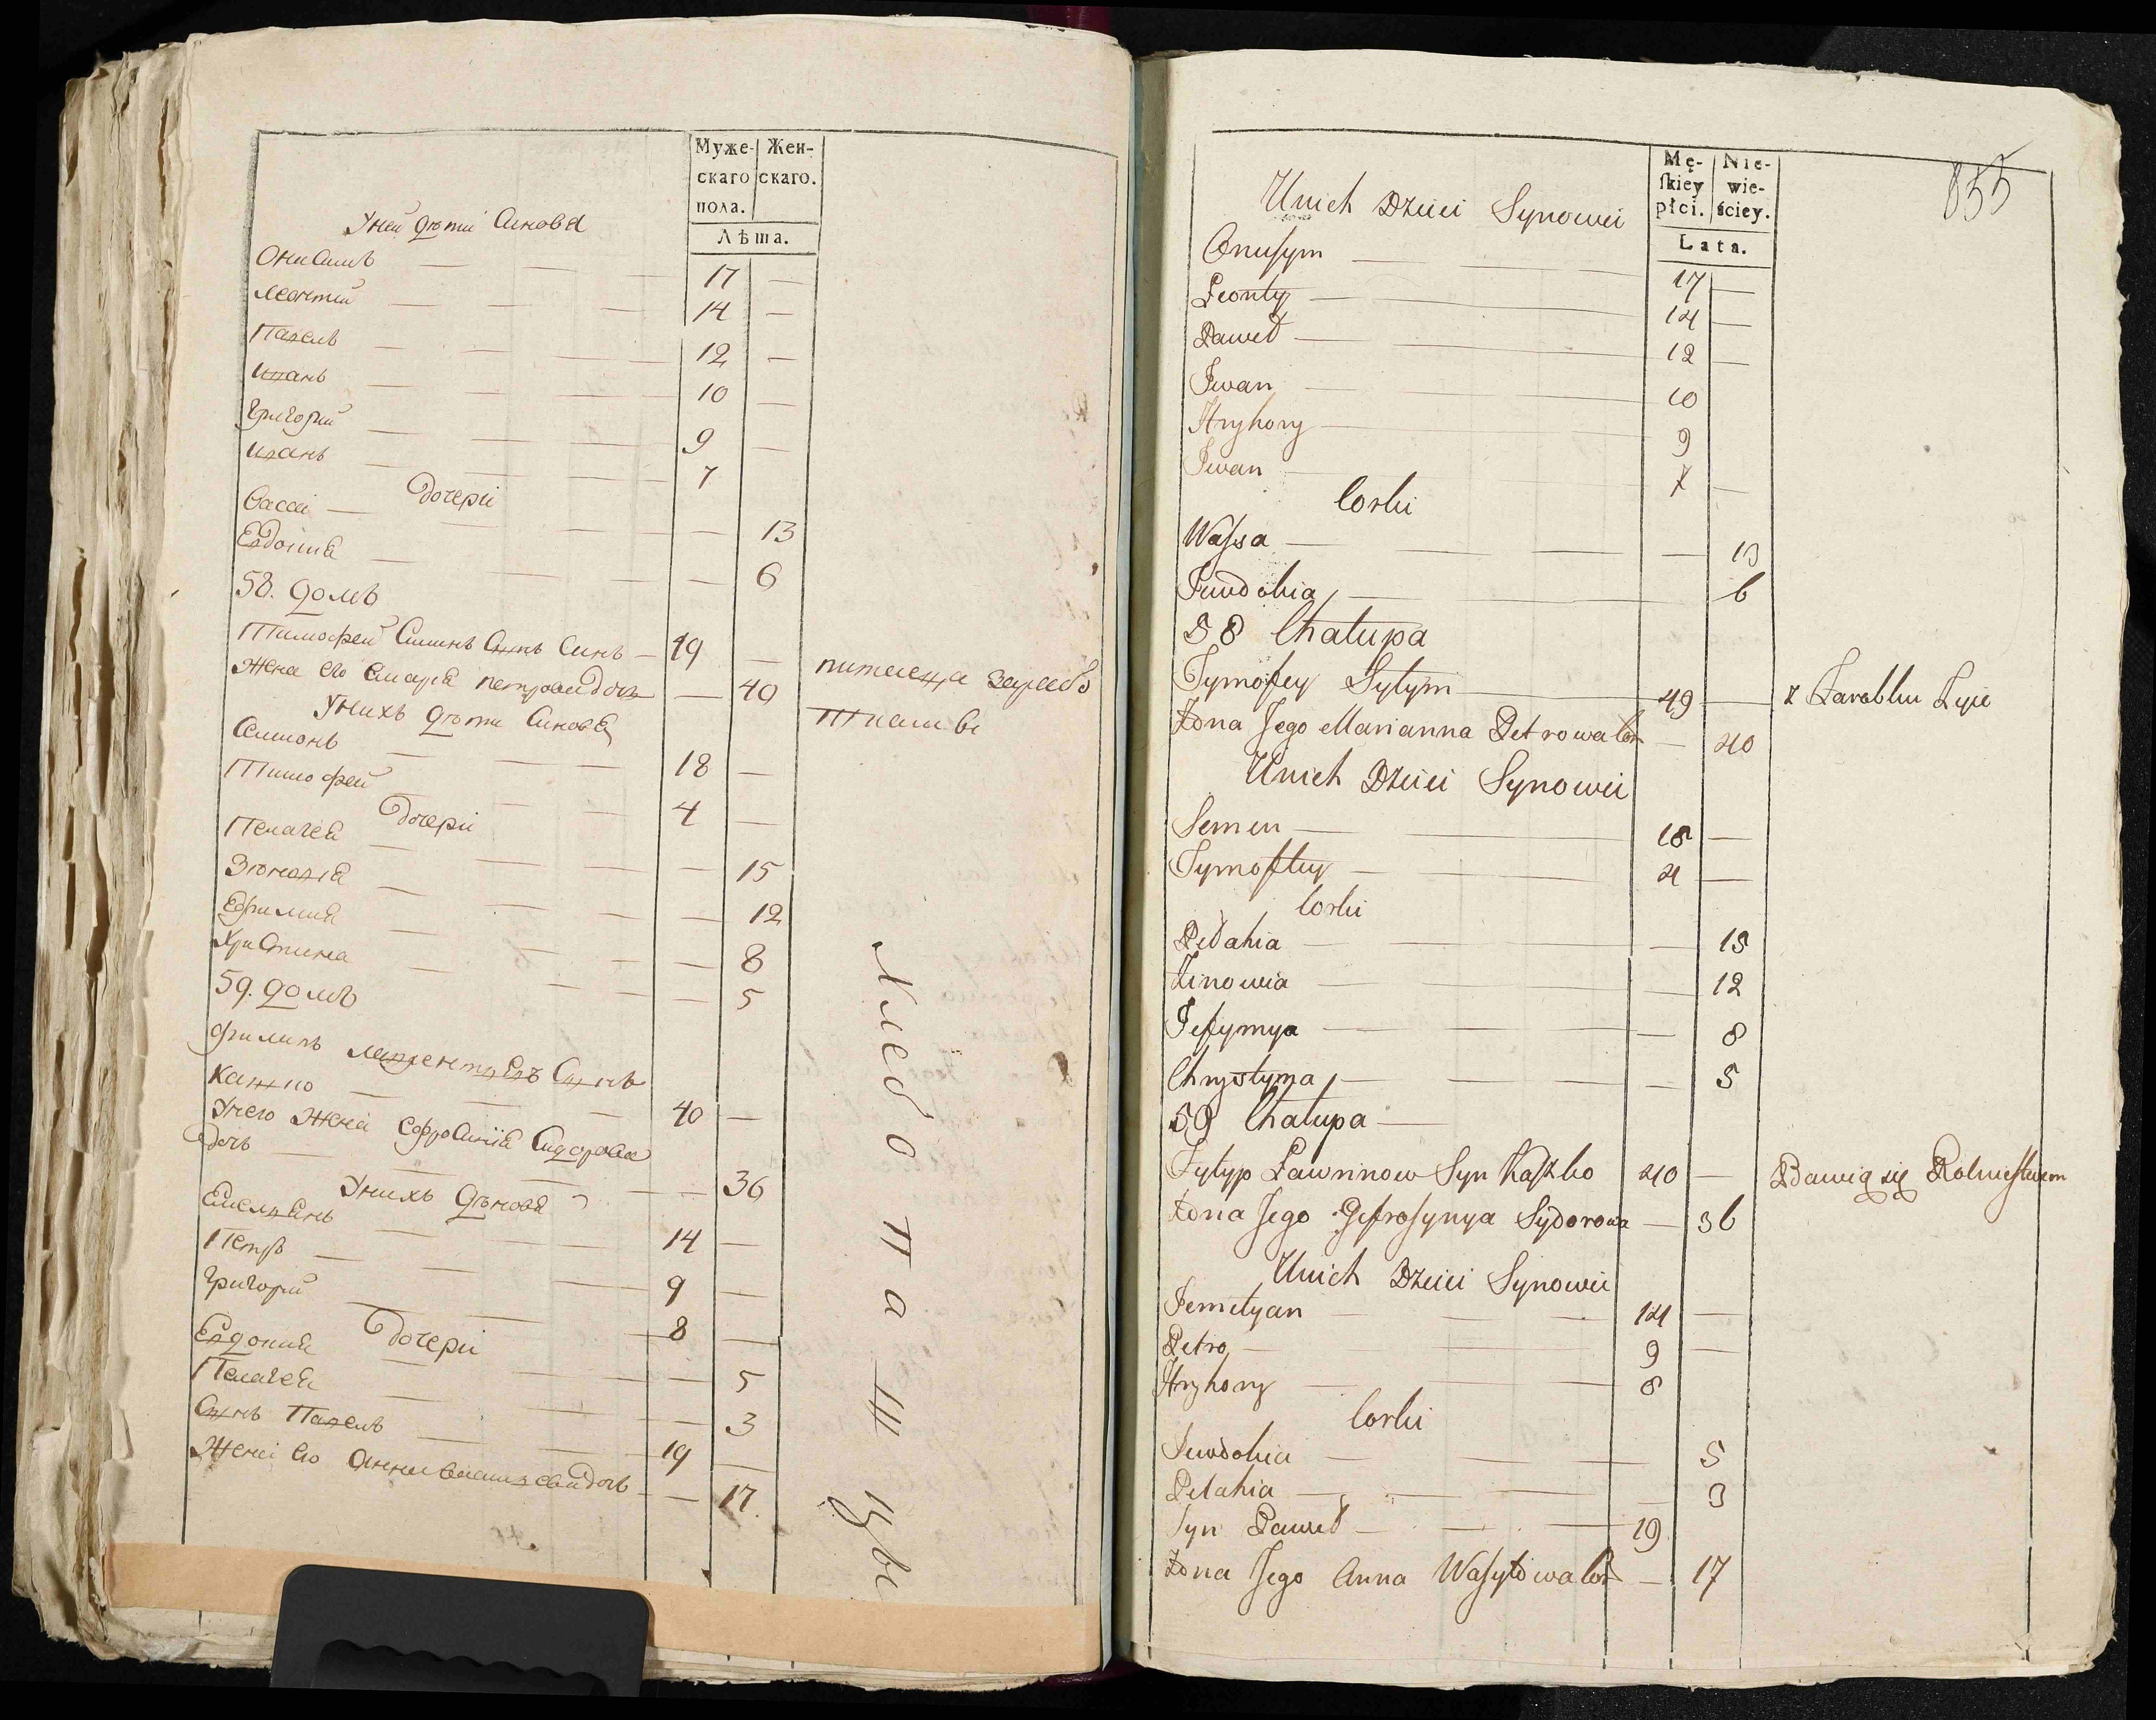 Муже- Жен-
скаго скаго.
пола.
Лѣта.
Уней дѣти Синова
Онисимъ 17 —
Леонтий 14 —
Павелъ 12 —
Иванъ 10 —
Григорий 9 —
Иванъ 7
дочери
Васса — 13
Евдокия — 6
58. домъ
Тимофей Синъ — 49 —
Жена его петрова дочь — 40
Унихъ дѣти Синовя
Симонъ 18 —
Тимофей 4 —
дочери
Пелагея — 15
Зѣновия — 12
Ефимия — 8
Христина — 5
59. домъ
Филипъ Синъ
Кашко 40 —
Унего Жена Ефросиния Сидорова
дочь — 36
Унихъ
Емелянъ 14 —
Петръ 9 —
Григорий 8 —
дочери
Евдокия — 5
Пелагея — 3
Синъ Павелъ 19 —
Жена его Анна дочь — 17.
Хлебопашцы
Mę- Nie-
ſkiey wie-
płci. ściey.
Lata.
855
Unich Dzieci Synowei
Onusym 17 —
Leonty 14 —
Paweł 12 —
Iwan 10
Hryhory 9
Iwan 7 —
Corki
Waſsa — 13
Iewdohia — 6
58 Chałupa
Tymofey Sylym 49 — z Zarobku Żyie
Żona Jego Marianna Petrowa Cor — 40
Unich Dzieci Synowei
Semen 18 —
Tymoftey 4 —
Corki
Pełahia — 15
Zinowia — 12
Jefymya — 8
Chrystyna — 5
59 Chałupa —
Fylyp Ławrinow Syn Kaſzko 40 — Bawią się Rolnictwem
Żona Jego Jefroſynya Sydorowa — 36
Unich Dzieci Synowie
Jemelyan 14 —
Petro 9 —
Hryhory 8
Corki
Jewdohia — 5
Pelahia — 3
Syn Paweł — 19
Żona Jego Anna Waſylowa Cor — 17